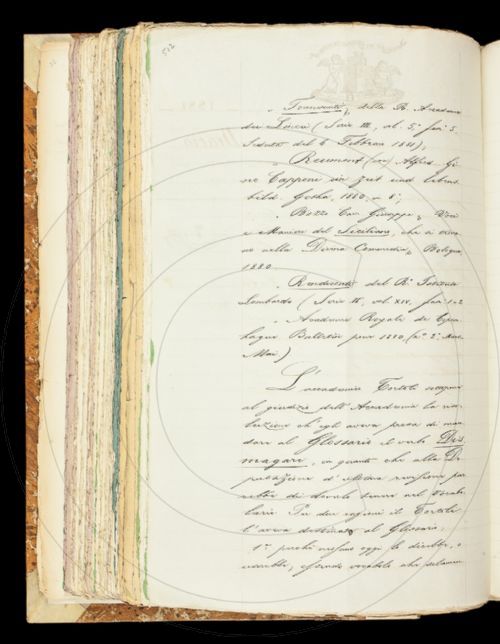 522
„ Transunti, della R. Accademia
dei Lincei (Serie III, vol. 5°, fasc. 5.
Seduta del 6 Febbraio 1881);
„ Reumont (von) Alfred. Gi
no Capponi ein Zeit und Lebens
bild. Gotha, 1880, in 8°;
„ Bozzo Cav. Giuseppe, Voci
e Maniere del Siciliano, che si trova
no nella Divina Commedia, Bologna
1880
„ Rendiconti del R. Istituto
Lombardo (Serie II, vol. XIV, fasc. 1-2
„ Académie Royale de Copen
hague Bulletin pour 1880 (n.° 2.
Mai)
L'accademico Tortoli
al giudizio dell'Accademia la ri
soluzione ch'egli aveva presa di man
dare al Glossario il verbo Dis
magare, in quanto che alla De
putazione
di doverlo tenere nel Vocabo
lario. Per due ragioni il Tortoli
l'aveva destinato al Glossario;
1° perchè nessuno oggi lo direbbe, o
, essendo vocabolo che solamen